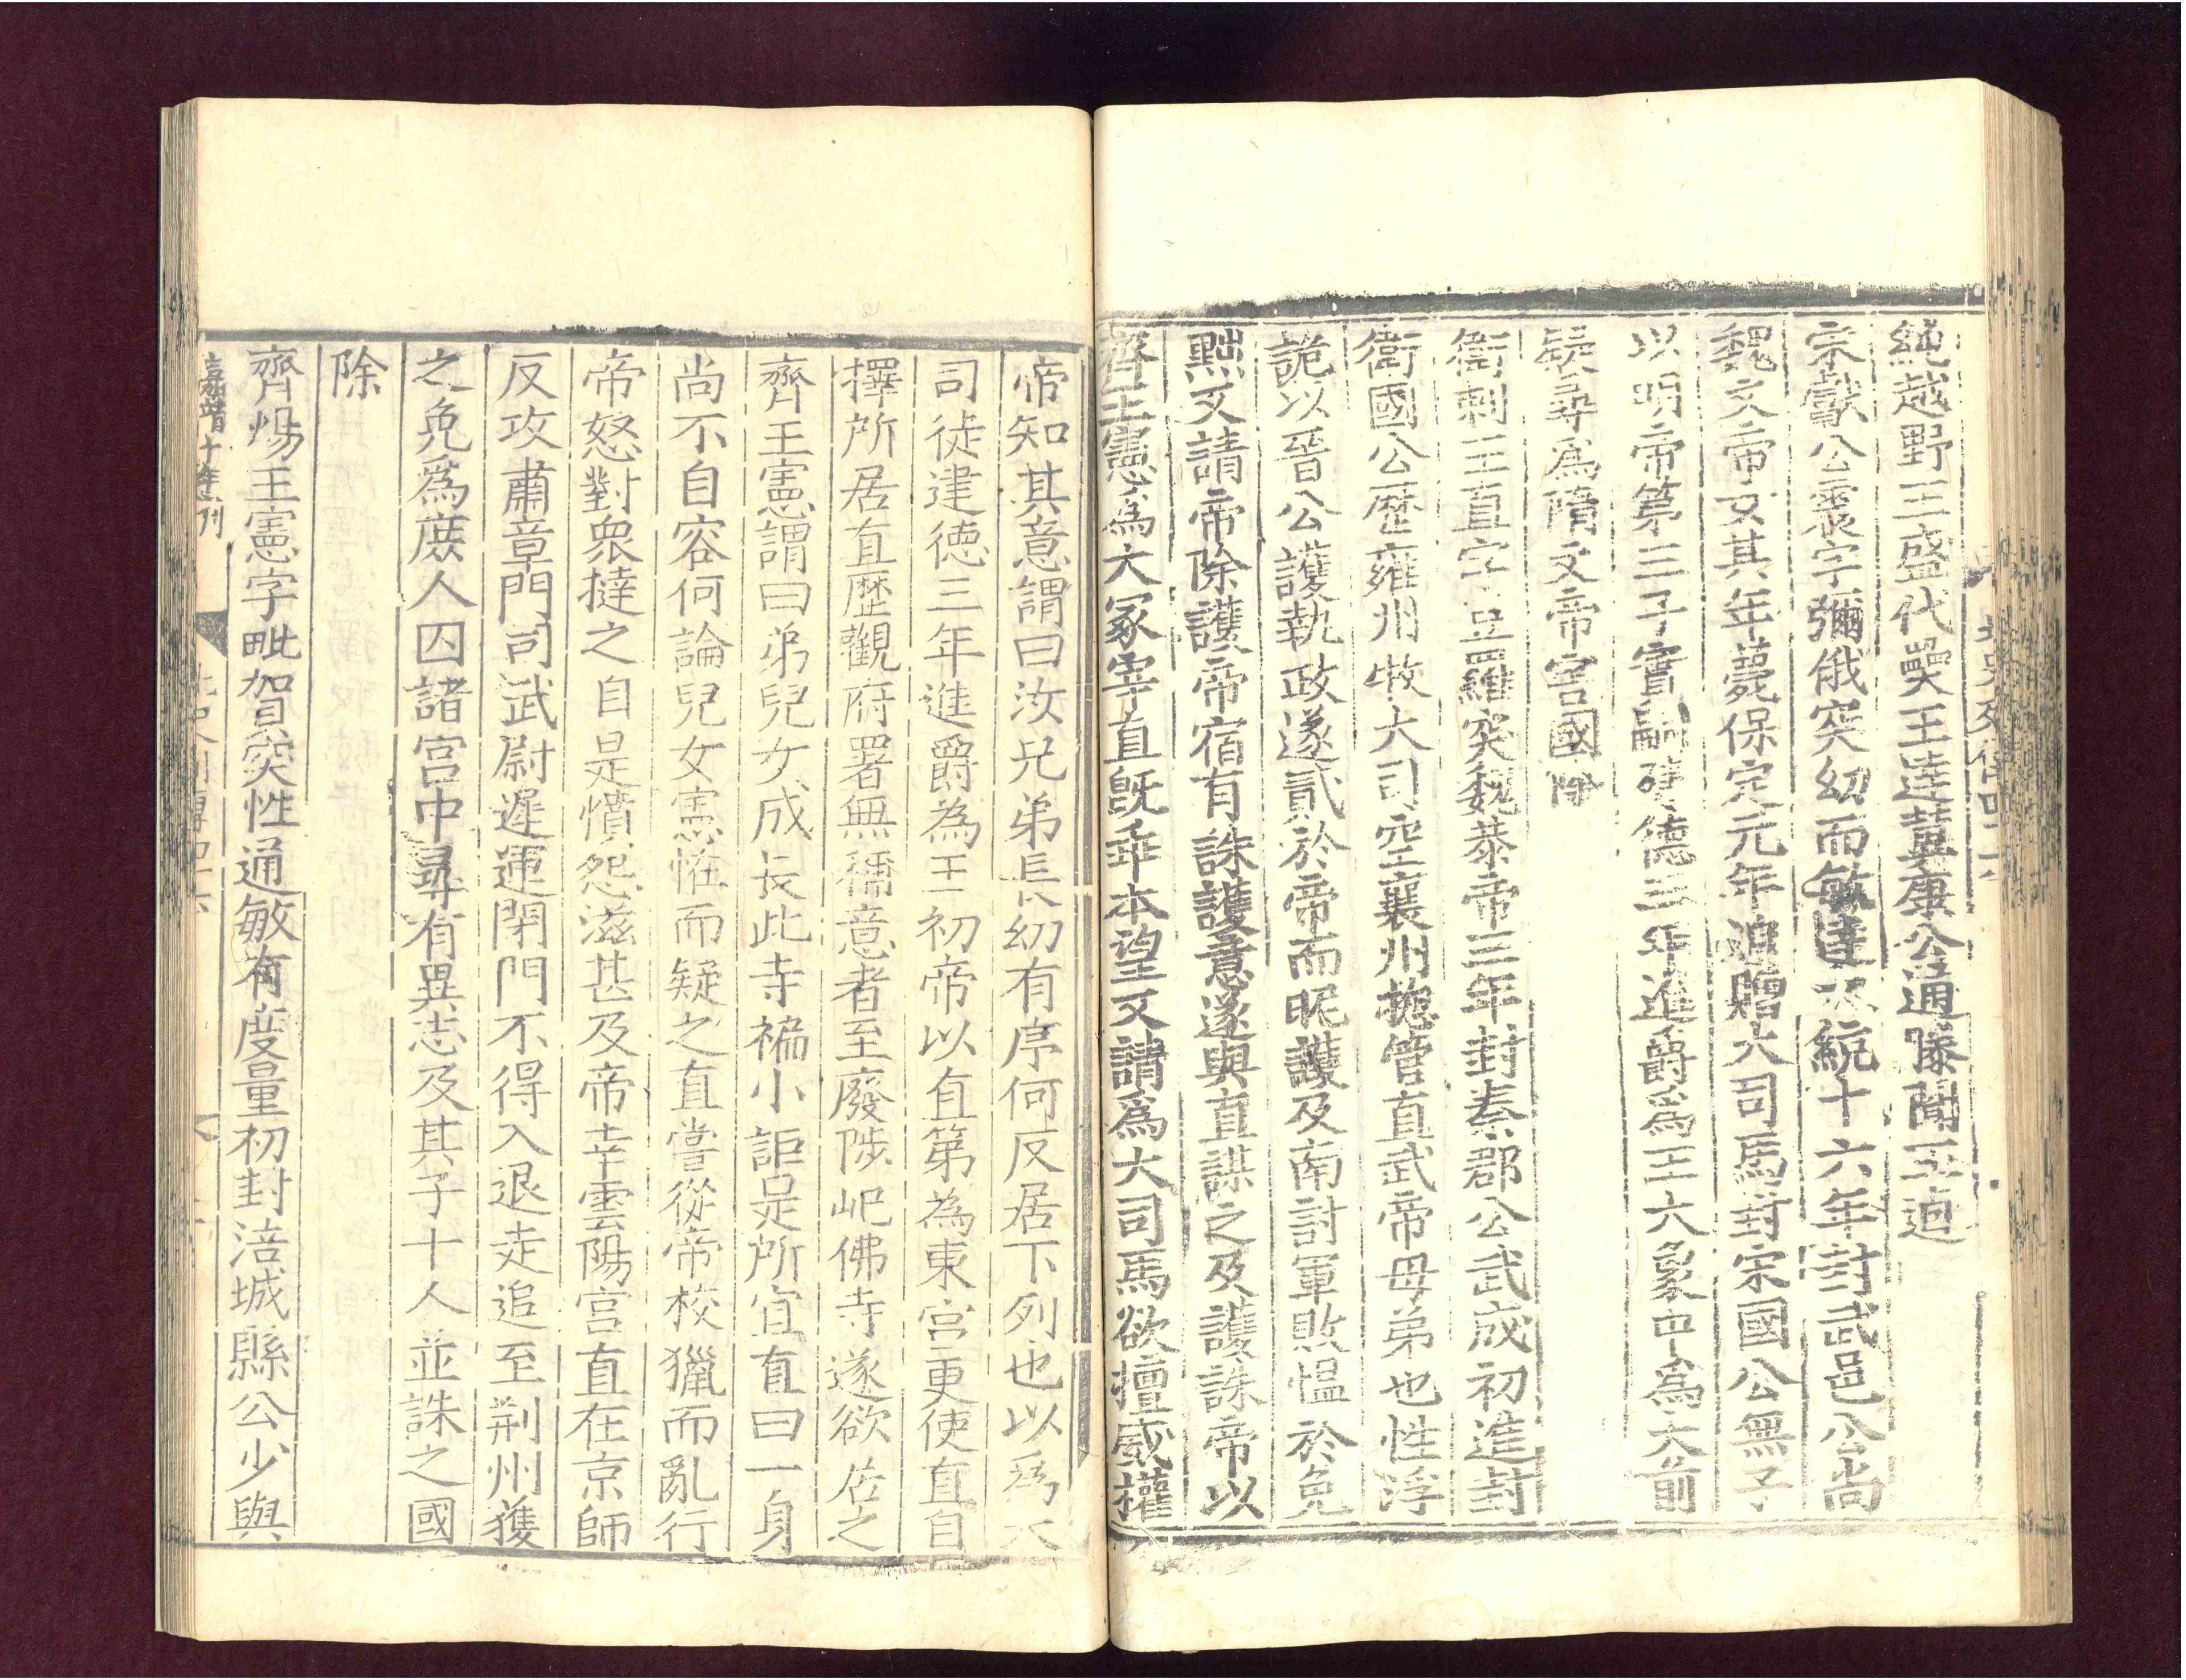 純越野王盛代奰王達冀康公通滕聞王逌
宋獻公震字彌俄突幼而敏達大統十六年封武邑公尚
魏文帝女其年薨保定元年追贈大司馬封宋國公無子
以明帝第三子寔嗣建德三年進爵爲王大象中爲大前
疑尋爲隋文帝害國除
衞剌王直字豆羅突魏恭帝三年封秦郡公武成初進封
衞國公歷雍州牧大司空襄州揔管直武帝母弟也性浮
詭以晉公護執政遂貳於帝而昵護及南討軍敗愠於免
黜又請帝除護帝宿有誅護意遂與直謀之及護誅帝以
齊王憲爲大冢宰直旣乖本望又請爲大司馬欲擅威權
帝知其意謂曰汝兄弟長幼有序何反居下列也以爲大
司徒建德三年進爵為王初帝以直第為東宮更使直自
擇所居直歷觀府署無稱意者至廢陟屺佛寺遂欲居之
齊王憲謂曰弟兒女成長此寺褊小詎是所宜直曰一身
尚不自容何論兒女憲恠而疑之直嘗從帝校獵而亂行
帝怒對衆撻之自是憤怨滋甚及帝幸雲陽宮直在京師
反攻肅章門司武尉遲運閉門不得入退走追至荆州獲
之免爲庶人囚諸宮中尋有異志及其子十人並誅之國
除
齊煬王憲字毗賀突性通敏有度量初封涪城縣公少與
嘉靖十年刊